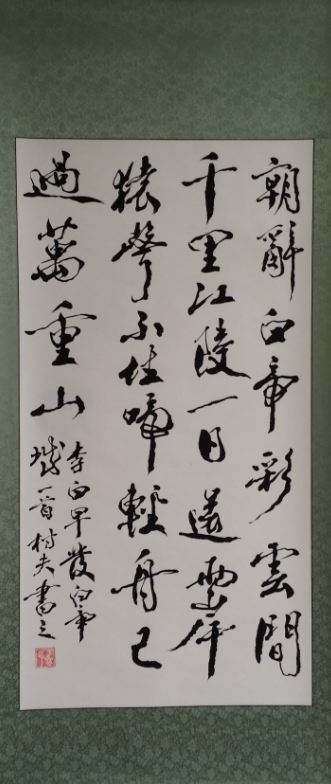 朝辭白帝彩雲間
千里江陵一日還兩岸
猿聲不住啼輕舟已
過萬重山
李白早發白帝
城一首村夫書之